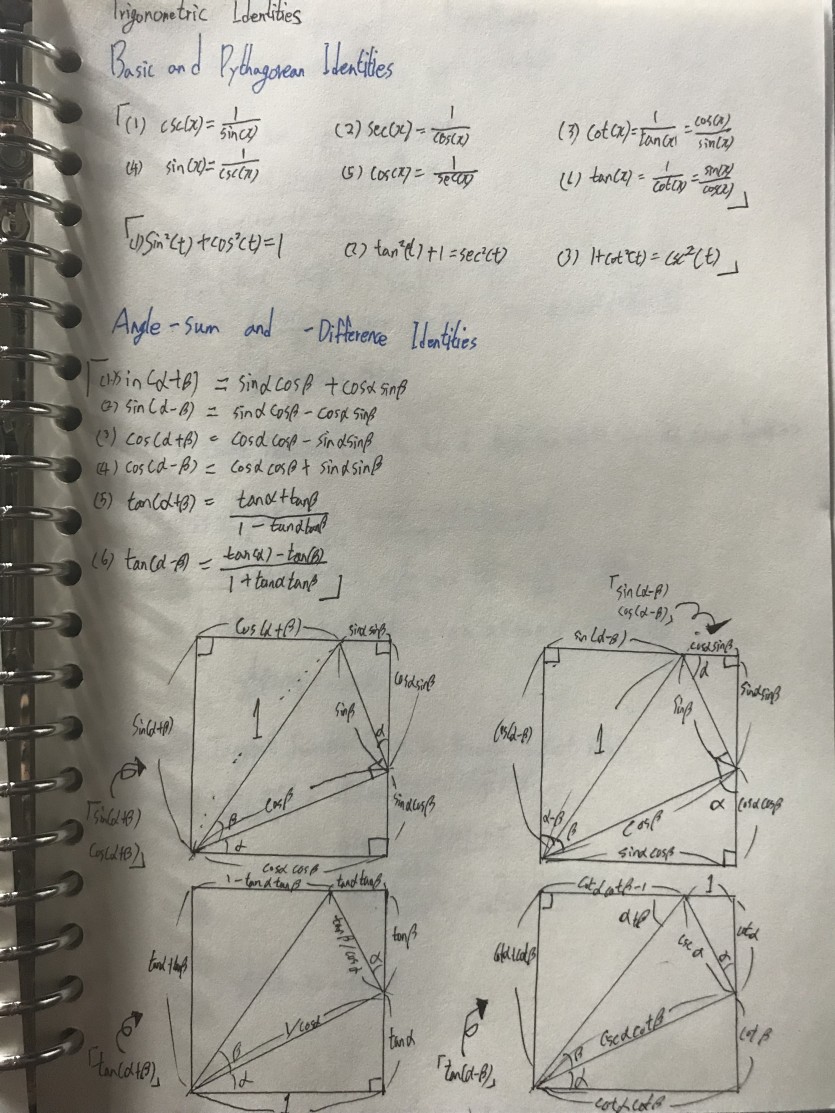 Trigonometric Identities
Basic and Pythagorean Identities
「(1) csc(x) = 1/sin(x) (2) sec(x) = 1/cos(x) (3) cot(x) = 1/tan(x) = cos(x)/sin(x)
(4) sin(x) = 1/csc(x) (5) cos(x) = 1/sec(x) (6) tan(x) = 1/cot(x) = sin(x)/cos(x)」
「(1) sin²(t) + cos²(t) = 1 (2) tan²(t) + 1 = sec²(t) (3) 1 + cot²(t) = csc²(t)」
Angle-sum and -Difference Identities
「(1) sin(α+β) = sinα cosβ + cosα sinβ
(2) sin(α-β) = sinα cosβ - cosα sinβ
(3) cos(α+β) = cosα cosβ - sinα sinβ
(4) cos(α-β) = cosα cosβ + sinα sinβ
(5) tan(α+β) = tanα + tanβ / 1 - tanα tanβ
(6) tan(α-β) = tan(α) - tan(β) / 1 + tanα tanβ」
cos(α+β) sinα sinβ
sin(α+β)
1
sinβ
cosα sinβ
α
cosβ
sinα cosβ
β
α
cosα cosβ
「sin(α+β)
cos(α+β)」
「sin(α-β)
cos(α-β)」
sin(α-β) cosα sinβ
α
cos(α-β)
1
sinβ
sinα sinβ
α
cosα cosβ
α-β
β
cosβ
sinα cosβ
1-tanα tanβ tanα tanβ
tanα+tanβ
tanβ/cosα
tanβ
α
1/cosα
tanα
β
α
1
「tan(α+β)」
cotα cotβ-1 1
α+β
cotα+cotβ
cscα
cotα
α
cscα cotβ
cotβ
β
α
cotα cotβ
「tan(α-β)」